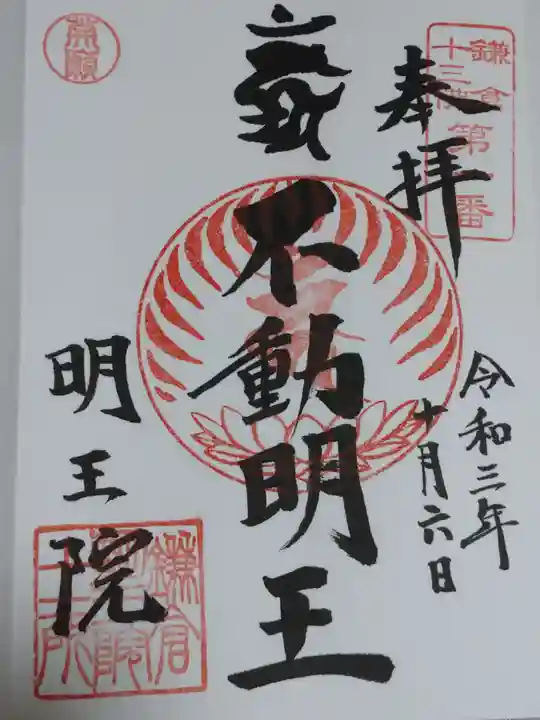 鎌倉
十三佛
第一番
奉拝
令和三年
十月六日
不動明王
明王院